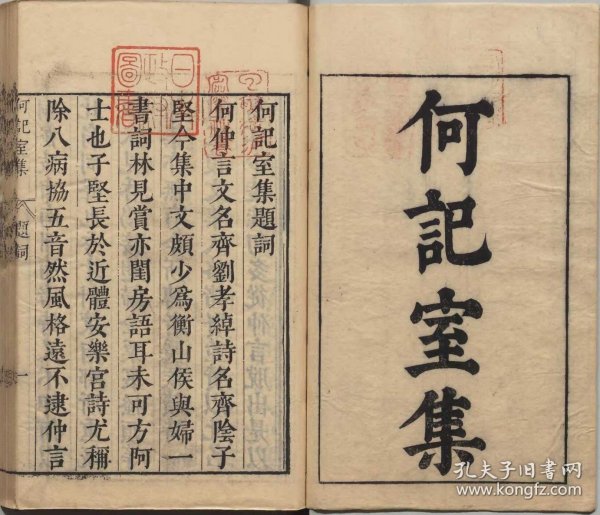 何記室集
何記室集題詞
何仲言文名齊劉孝綽詩名齊陰子
堅今集中文頗少為衡山侯與婦一
書詞林見賞亦閨房語耳未可方阿
士也子堅長於近體安樂宮詩尤稱
除八病協五音然風格遠不逮仲言
何記室集
題詞
一
孔夫子旧书网
www.kongfz.com